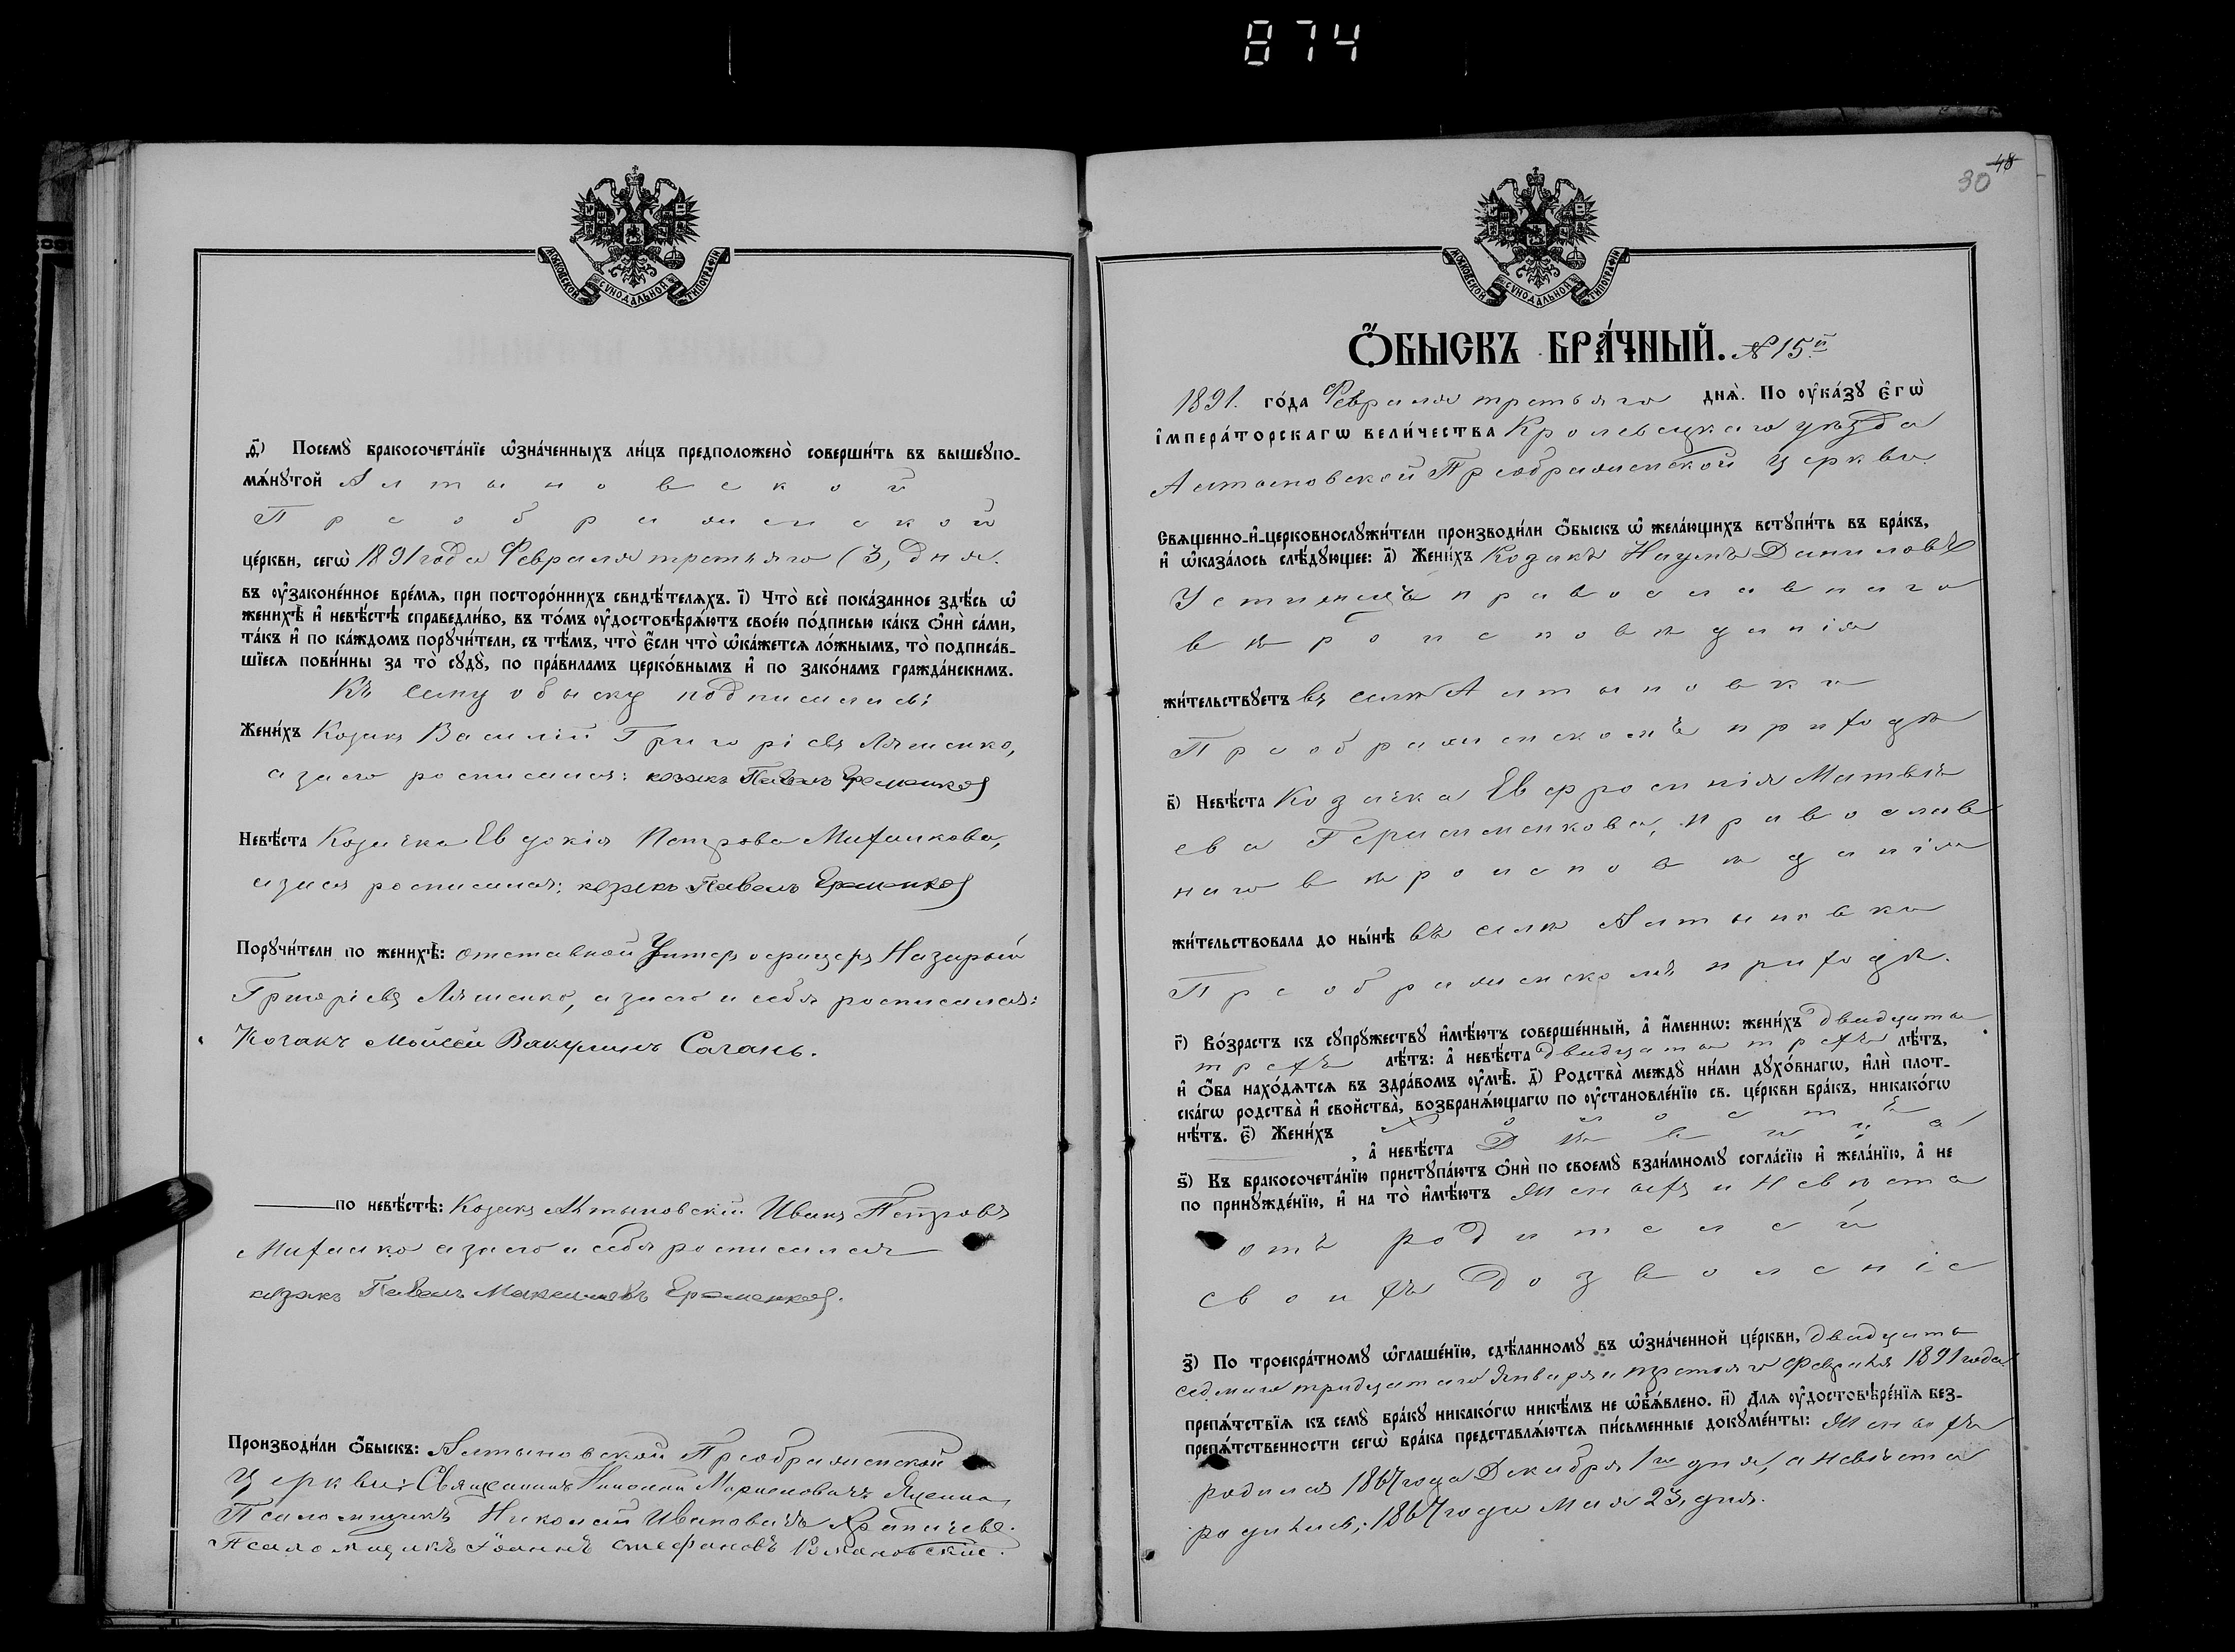 874
МОСКОВСКОЙ СѴНОДАЛЬНОЙ ТИПОГРАФІИ
д҃) Посемꙋ̀ бракосочета́нїе ѡ҆зна́ченныхъ ли́цъ предположено̀ соверши́ть въ вышеꙋпо-
мѧ́нꙋтой Алтыновской
Преображенской
це́ркви, сегѡ̀ 1891 года Февраля третьяго (3, дня.
въ оу҆законе́нное вре́мѧ, при посторо́ннихъ свидѣ́телѧхъ. і҃) Что̀ всѐ пока́занное здѣ́сь ѡ҆
женихѣ̀ и҆ невѣ́стѣ справедли́во, въ то́мъ оу҆достовѣрѧ́ютъ свое́ю по́дписью ка́къ ѻ҆нѝ са́ми,
та́къ и҆ по ка́ждомъ порꙋчи́тели, съ тѣ́мъ, что̀ є҆́сли что̀ ѡ҆ка́жетсѧ ло́жнымъ, то̀ подписа́в-
шїесѧ пови́нны за то̀ сꙋдꙋ̀, по пра́виламъ церко́внымъ и҆ по зако́намъ гражда́нскимъ.
Къ сему обыску подписались:
Жени́хъ Козакъ Василій Григоріевъ Ляшенко,
а за него росписался: козакъ Павелъ Еременко
Невѣ́ста Козачка Евдокія Петрова Михайкова,
а за нея росписался: козакъ Павелъ Еременко
Порꙋчи́тели по женихѣ̀: отставной Унтеръ офицеръ Назарій
Григоріевъ Ляшенко, а за него и себя росписался:
Козакъ Моисей Вакулинъ Сагань.
по невѣ́стѣ: Козакъ Алтыновскій Иванъ Петровъ
Михайко а за него и себя росписался
козакъ Павелъ Максимовъ Еременко.
Производи́ли ѻ҆́быскъ: Алтыновской Преображенской
Церкви: Священникъ Николай
Псаломщикъ Николай Ивановичъ
Псаломщикъ Іоаннъ Стефановъ Романовскій.
30 48
МОСКОВСКОЙ СѴНОДАЛЬНОЙ ТИПОГРАФІИ
Ѻ҆́БЫСКЪ БРА́ЧНЫЙ. № 15й
1891. го́да Февраля третьяго днѧ̀. По оу҆ка́зꙋ є҆гѡ̀
і҆мпера́торскагѡ вели́чества Кролевецкаго уѣзда
Алтыновской Преображенской церкви
Свѧщенно-и҆-церковнослꙋжи́тели производи́ли ѻ҆́быскъ ѡ҆ жела́ющихъ встꙋпи́ть въ бра́къ,
и҆ ѡ҆каза́лось слѣ́дꙋющее: а҃) Жени́хъ Козакъ Наумъ Даниловъ
Устимецъ православнаго
вѣроисповѣданія
жи́тельствꙋетъ въ селѣ Алтыновка
Преображенскомъ приходѣ
в҃) Невѣ́ста Козачка Евфросинія Матвѣе
ева Герасименкова, православ
наго вѣроисповѣданія
жи́тельствовала до ны́нѣ въ селѣ Алтыновка
Преображенскомъ приходѣ.
г҃) Во́зрастъ къ сꙋпрꙋ́жествꙋ и҆мѣ́ютъ соверше́нный, а҆ и҆́меннѡ: жени́хъ двадцати
трехъ лѣ́тъ: а҆ невѣ́ста двадцати трехъ лѣ́тъ,
и҆ ѻ҆́ба нахо́дѧтсѧ въ здра́вомъ оу҆мѣ̀. д҃) Родства̀ междꙋ̀ ни́ми дꙋхо́внагѡ, и҆лѝ плот-
ска́гѡ родства̀ и҆ свойства̀, возбранѧ́ющагѡ по оу҆становле́нїю св. це́ркви бра́къ, никако́гѡ
нѣ́тъ. є҃) Жени́хъ холостъ
, а҆ невѣ́ста Дѣвица
ѕ҃) Къ бракосочета́нїю пристꙋпа́ютъ ѻ҆нѝ по своемꙋ̀ взаи́мномꙋ согла́сїю и҆ жела́нїю, а҆ не
по принꙋжде́нїю, и҆ на то̀ и҆мѣ́ютъ Женихъ и Невѣста
отъ родителей
своихъ дозволеніе
з҃) По троекра́тномꙋ ѡ҆глаше́нїю, сдѣ́ланномꙋ въ ѡ҆зна́ченной це́ркви, двадцать
седмаго тридцатаго Января и третьяго Февраля 1891 года
препѧ́тствїѧ къ семꙋ̀ бра́кꙋ никако́гѡ никѣ́мъ не ѡ҆б̾ѧ́влено. и҃) Длѧ оу҆достовѣре́нїѧ без-
препѧ́тственности сегѡ̀ бра́ка представлѧ́ютсѧ пи́сьменные докꙋме́нты: Женихъ
родился 1867 года Декабря 1го дня, а невѣста
родилась: 1867 года Мая 23, дня.